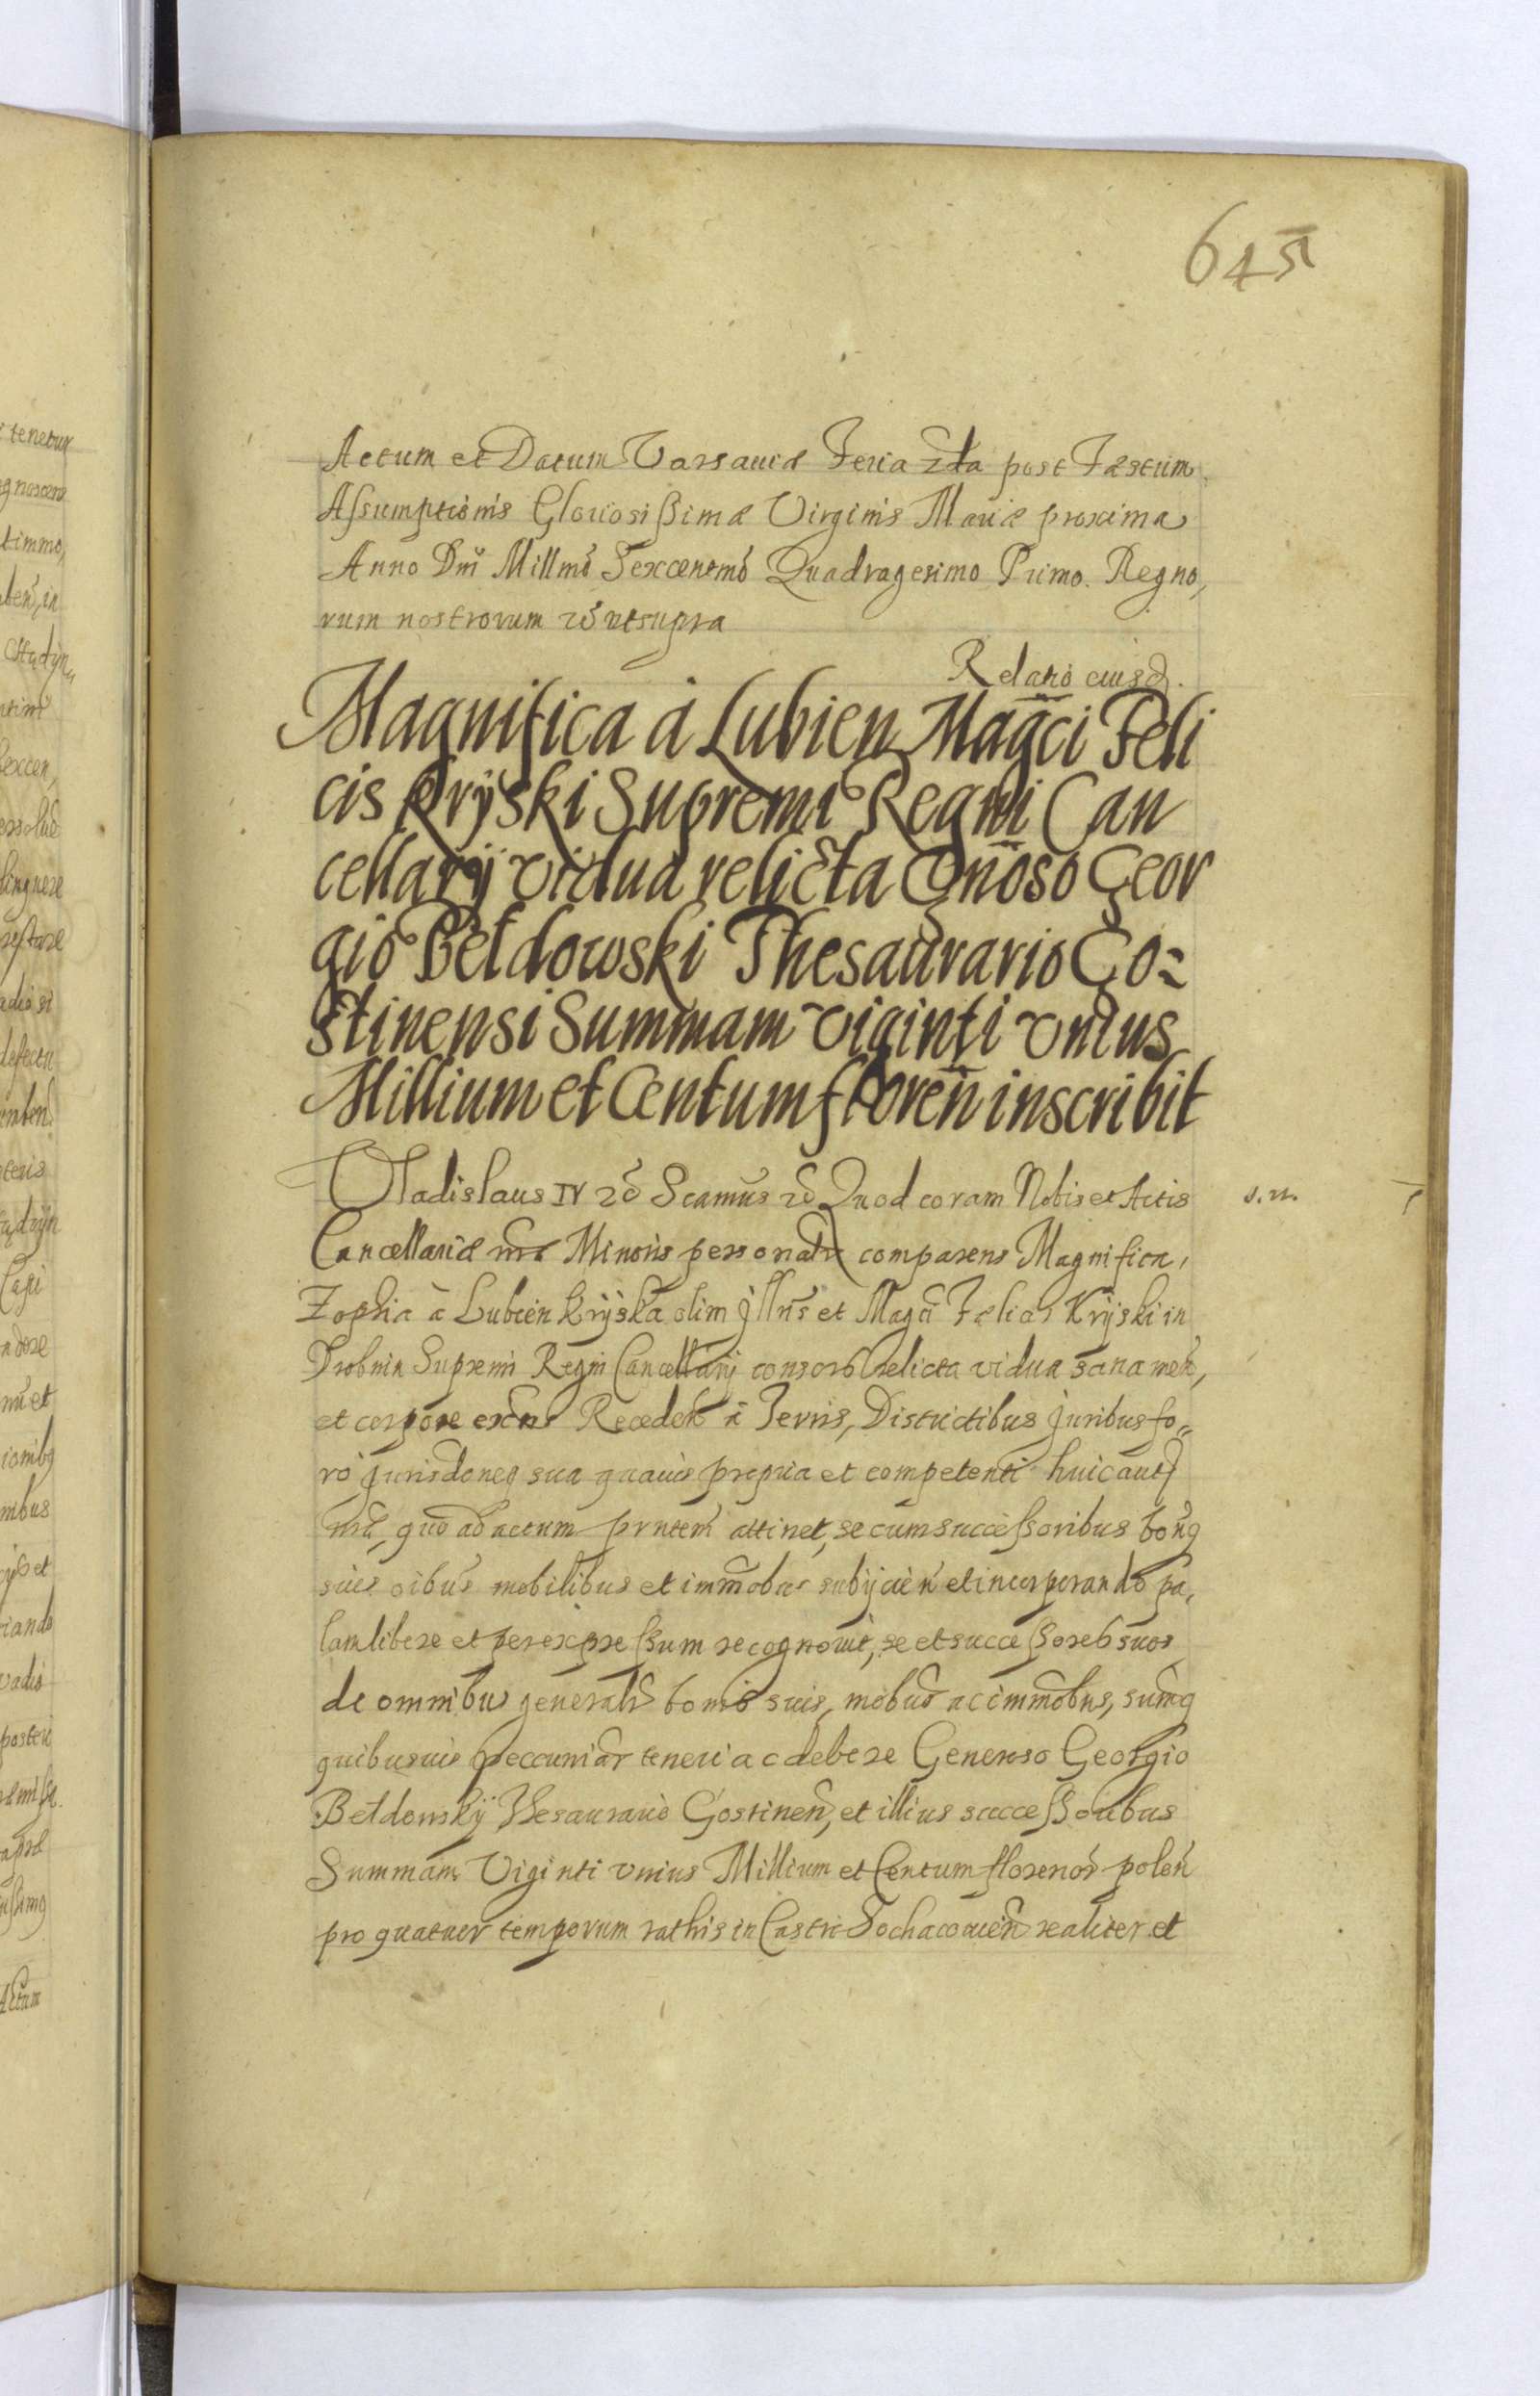 645
Actum et Datum Varsaviæ Feria 2da post Fæstum
Assumptionis Gloriosissimæ Virginis Mariæ proxima
Anno Dni Millmo Sexcentmo Quadragesimo Primo. Regno,
rum nostrorum ut supra
Relatio eiusd.
Magnifica a Lubien Magci Feli
cis Kryski Supremi Regni Can
cellarij vidua relicta Gnoso Geor
gio Bełdowski Thesaurario Go=
stinensi Summam viginti vnius
Millium et Centum floren inscribit
Vladislaus IV Quod coram Nobis et Actis
s. n.
Cancellariæ nræ Minoris personalr comparens Magnifica,
Zophia à Lubien Kryska olim Illris et Magci Felicis Kryski in
Drobnin Supremi Regni Cancellarij consors relicta vidua sana men,
et corpore exns Receden à Terris, Districtibus Juribus fo,,
ro Jurisdoneq sua quavis propria et competenti huic autem
quo ad actum prntem attinet, se cum successoribus bonq
suis oibus mobilibus et immobus subijcien et incorporando pa,
lam libere et per expressum recognovit, se et successores suos
de omnibus generalr bonis suis, mobus ac immobus, sumq
quibusvis peccuniar teneri ac debere Generoso Georgio
Bełdowskÿ Thesaurario Gostinen, et illius successoribus
Summam Viginti vnius Millium et Centum florenor polen
pro quatuor temporum rathis in Castro Sochacovien realiter et